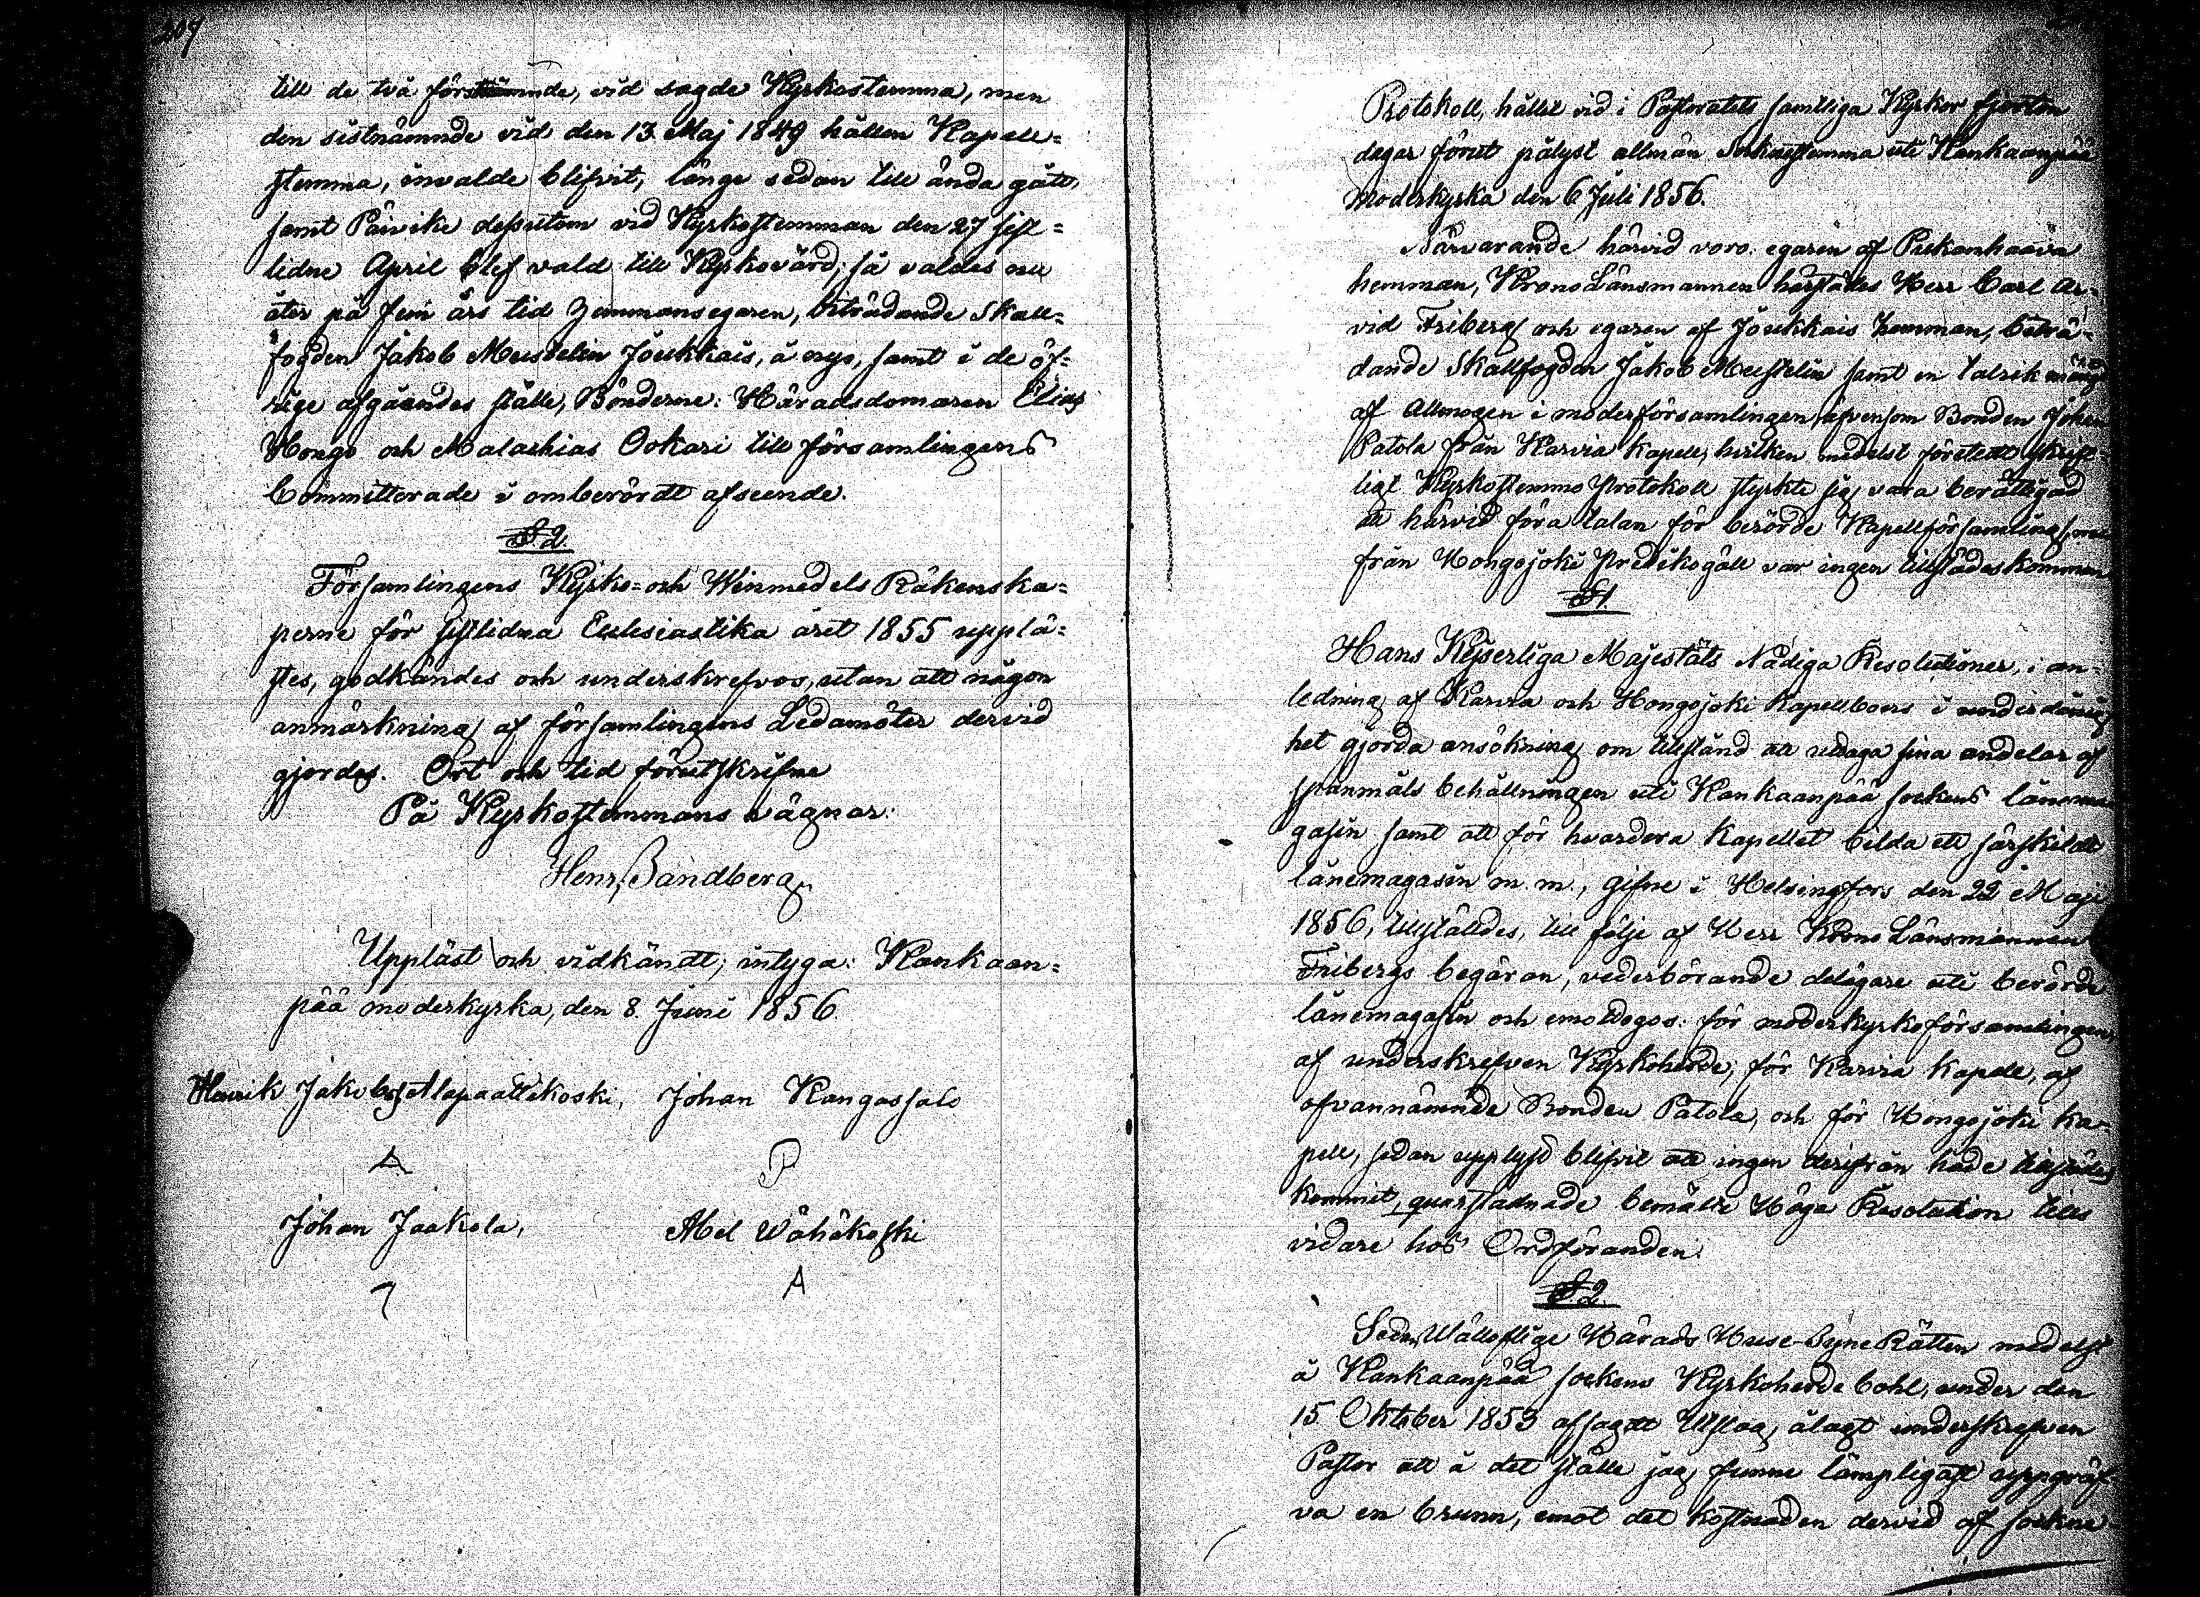 209
till de två förstnämnde, vid sagde Kyrkostemma, men
den sistnämnde vid den 13 Maj 1849 hållen Kapell=
stemma, invalde blifvit, länge sedan till ända gått,
samt Päivike dessutom vid Kyrkostemman den 27 sist=
lidne April blef vald till Kyrkovärd; så valdes nu
åter på fem års tid Hemmansegaren, biträdande Skall=
fogden Jakob Mustelin Joukkais, å nyo, samt i de öf=
rige afgåendes ställe, Bönderne: Häradsdomaren Elias
Hongo och Malachias Ookari till församlingens
Committerade i omberördt afseende.
§ 2.
Församlingens Kyrko= och Winmedels Räkenska=
perne för sistlidna Ecclesiastika året 1855 upplä=
stes, godkändes och underskrefvos, utan att någon
anmärkning af församlingens Ledamöter dervid
gjordes. Ort och tid förutskrifne
På Kyrkostemmans vägnar:
Henr. Sandberg
Uppläst och vidkändt, intyga: Kankaan=
pää moderkyrka, den 8 Juni 1856.
Henrik Jakobsson Alapaattikoski, Johan Kangassalo
A P
Johan Jaakola, Abel Wähäkoski
7 A
Protokoll, hållet vid i Pastoratets samtliga Kyrkor fjorton
dagar förut pålyst allmän Sockenstemma uti Kankaanpää
Moderkyrka den 6 Juli 1856.
Närvarande härvid voro: egaren af Pukanhaava
hemman, Krono Länsmannen härstädes Herr Carl Ar=
vid Friberg och egaren af Joukkais hemman, biträ=
dande Skallfogden Jakob Mustelin samt en talrik mängd
af Allmogen i moderförsamlingen, äfvensom Bonden Johan
Patola från Karvia Kapell, hvilken medelst företedt skrift=
ligt Kyrkostemmo Protokoll styrkte sig vara berättigad
att härvid föra talan för berörde Kapellförsamling, men
från Hongojoki Predikogäll var ingen tillstädeskommen
§ 1.
Hans Kejserliga Majestäts Nådiga Resolutioner, i an=
ledning af Karvia och Hongojoki Kapellboers i underdånig=
het gjorda ansökning om tillstånd att uttaga sina andelar af
spanmåls behållningen uti Kankaanpää sockens lånema=
gasin samt att för hvardera Kapellet bilda ett särskildt
lånemagasin m. m., gifne i Helsingfors den 22 Maji
1856, tillställdes, till följe af Herr Krono Länsmannen
Fribergs begäran, vederbörande delägare uti berörde
lånemagasin och emottogos: för moderkyrkoförsamlingen,
af underskrefven Kyrkoherde, för Karvia Kapell, af
ofvannämnde Bonden Patola, och för Hongojoki Ka=
pell, sedan upplyst blifvit att ingen derifrån hade tillstädes
kommit, quarstadnade bemälte Höga Resolution tills
vidare hos Ordföranden.
§ 2.
Sedan Wällofliga Härads Huse-Syne Rätten medelst
å Kankaanpää sockens Kyrkoherde bohl, under den
15 Oktober 1853 afsagdt Utslag, ålagt underskrefven
Pastor att å det ställe jag funne lämpligast uppgräf=
va en brunn, emot det kostnaden dervid af sockne